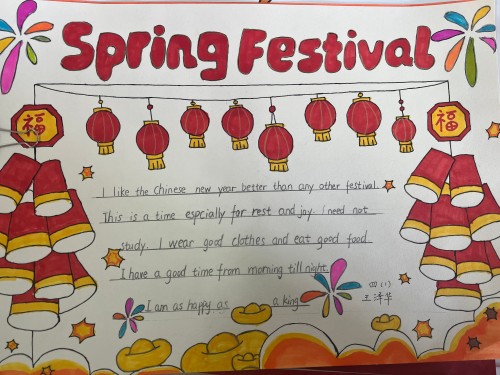 Spring Festival
福
福
I like the Chinese new year better than any other festival
This is a time espcially for rest and joy. I need not
study. I wear good clothes and eat good food.
I have a good time from morning till night.
I am as happy as a king
四(1)
王泽华